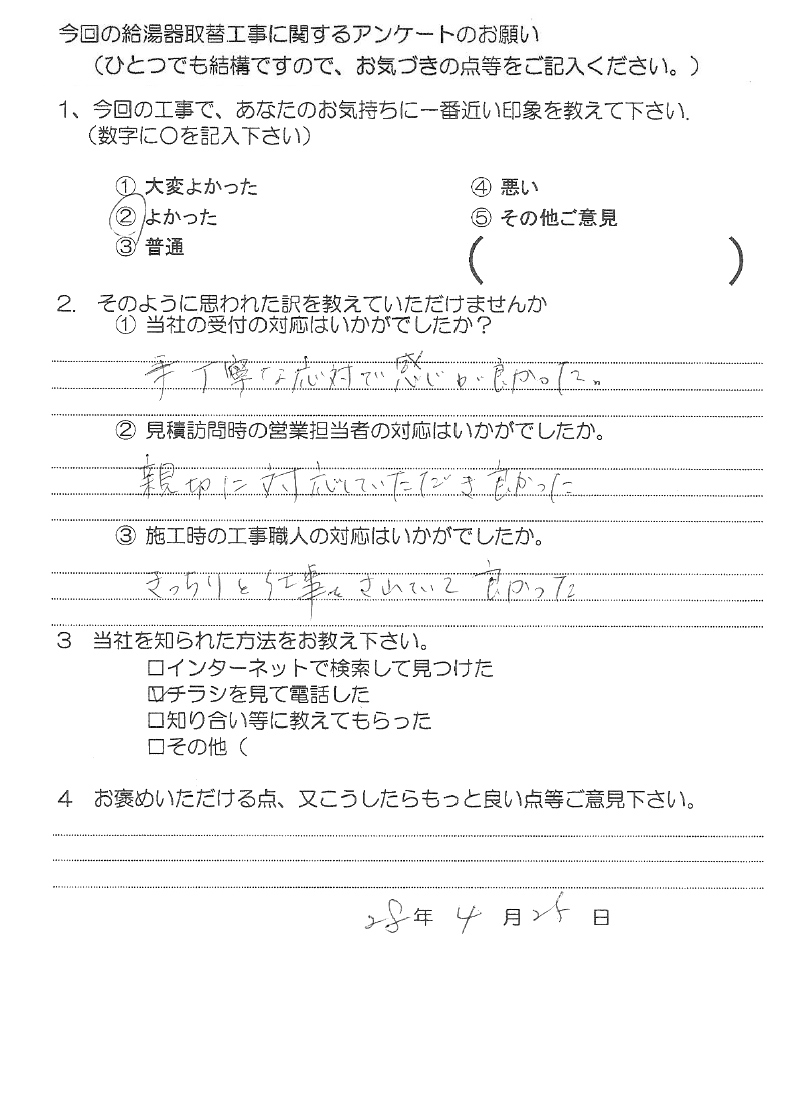 今回の給湯器取替工事に関するアンケートのお願い
（ひとつでも結構ですので、お気づきの点等をご記入ください。）
1、今回の工事で、あなたのお気持ちに一番近い印象を教えて下さい.
（数字に〇を記入下さい）
① 大変よかった ④ 悪い
② よかった ⑤ その他ご意見
③ 普通 （ ）
2. そのように思われた訳を教えていただけませんか
① 当社の受付の対応はいかがでしたか？
丁寧な応対で感じが良かった。
② 見積訪問時の営業担当者の対応はいかがでしたか。
親切に対応していただき良かった
③ 施工時の工事職人の対応はいかがでしたか。
きっちりと仕事をされていて良かった
3 当社を知られた方法をお教え下さい。
□インターネットで検索して見つけた
☑チラシを見て電話した
□知り合い等に教えてもらった
□その他（
4 お褒めいただける点、又こうしたらもっと良い点等ご意見下さい。
28年 4 月 25 日